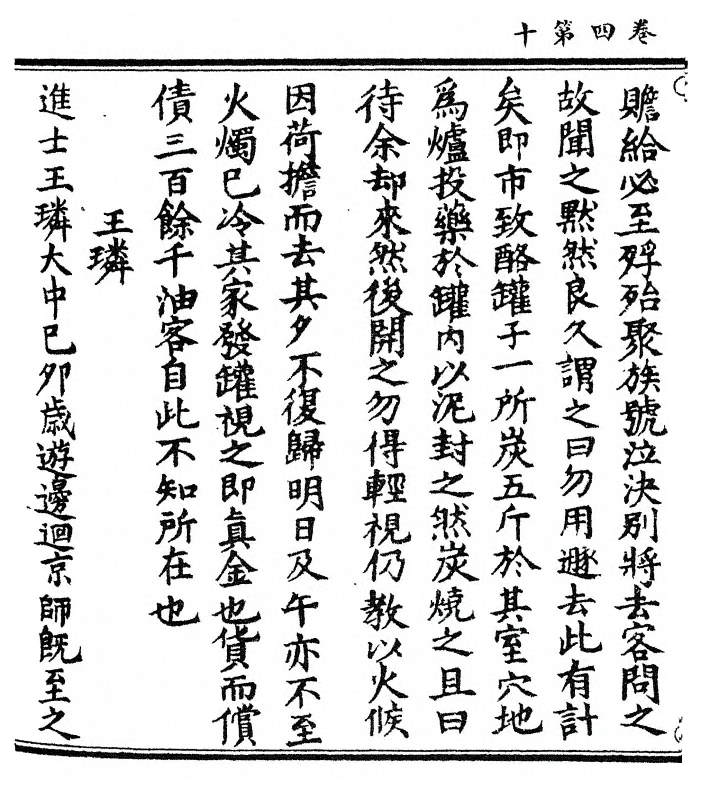 卷四第十
贍給必至殍殆聚族號泣決別將去客問之
故聞之黙然良久謂之曰勿用遯去此有計
矣即市致酪罐子一所炭五斤於其室穴地
爲爐投藥於罐內以泥封之然炭燒之且曰
待余却來然後開之勿得輕視仍教以火候
因荷擔而去其夕不復歸明日及午亦不至
火燭已冷其家發罐視之即真金也貨而償
債三百餘千油客自此不知所在也
王璘
進士王璘大中已夘歳遊邊迴京師旣至之